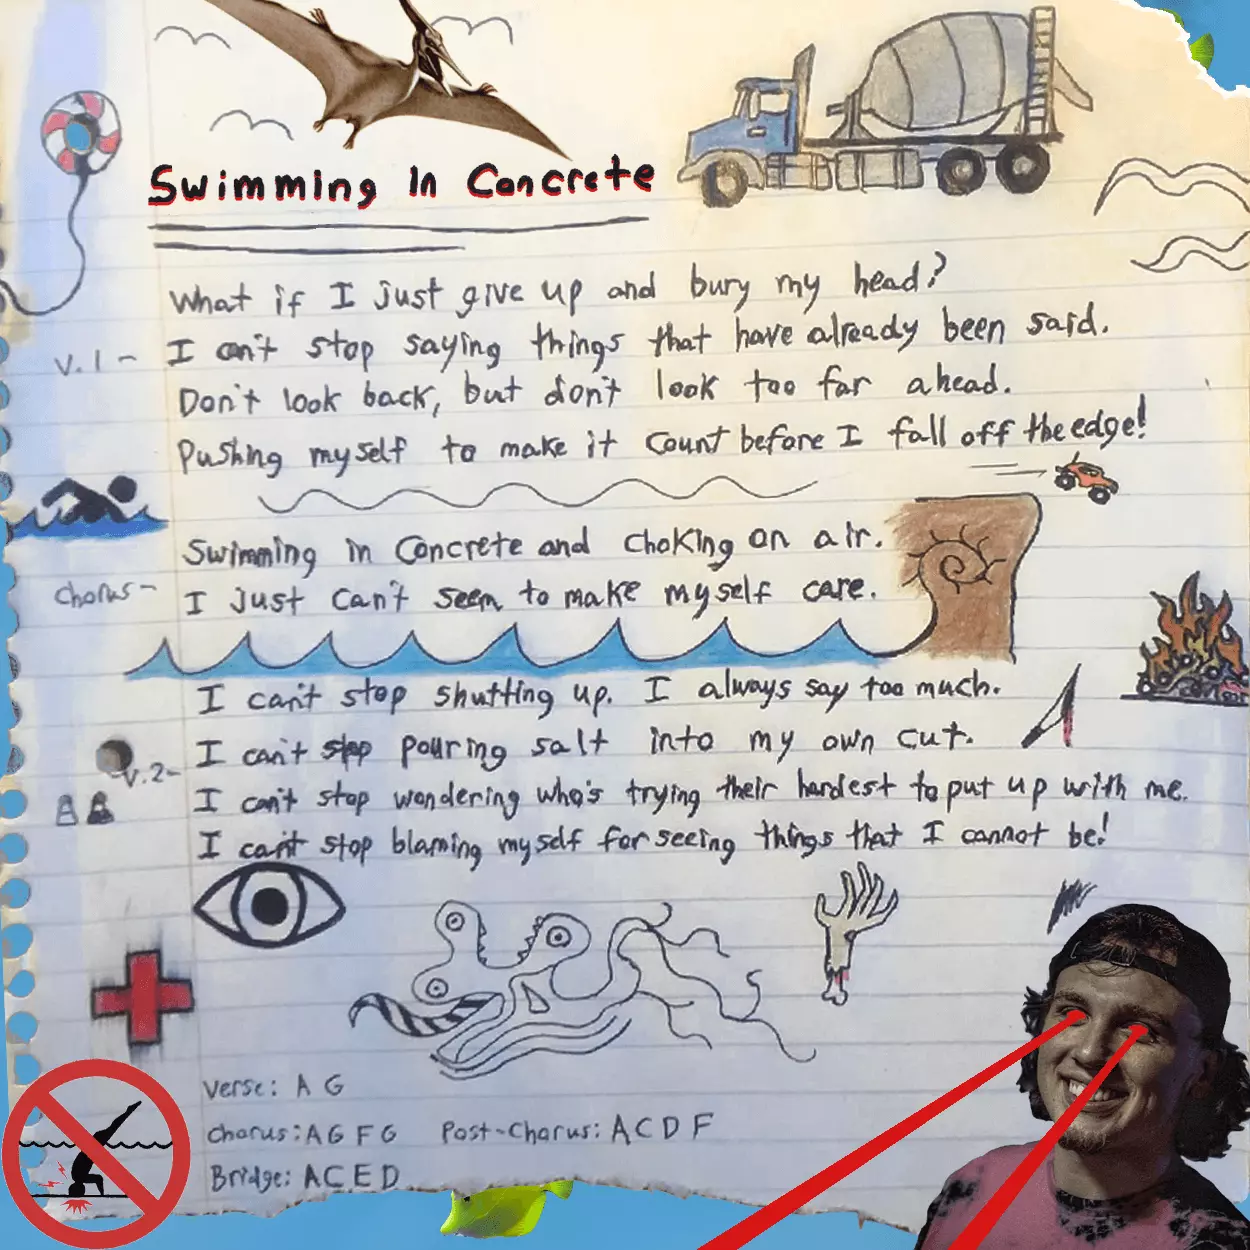 Swimming In Concrete
What if I just give up and bury my head?
V.1- I can't stop saying things that have already been said.
Don't look back, but don't look too far ahead.
Pushing myself to make it count before I fall off the edge!
Swimming in Concrete and choking on air.
Chorus- I just can't seem to make myself care.
I can't stop shutting up. I always say too much.
I can't stop pouring salt into my own cut.
V.2- I can't stop wondering who's trying their hardest to put up with me.
I can't stop blaming myself for seeing things that I cannot be!
Verse: A G
Chorus: A G F G Post-Chorus: A C D F
Bridge: A C E D